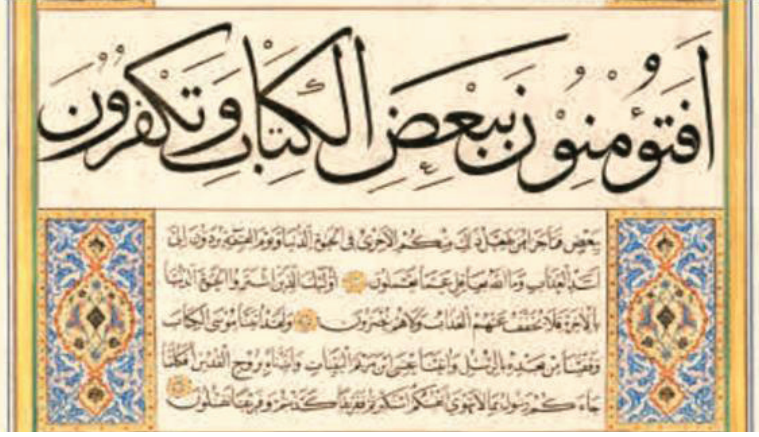 اَفَتُؤْمِنُونَ بِبَعْضِ الْكِتَابِ وَتَكْفُرُونَ
بِبَعْضٍ فَمَا جَزَاءُ مَنْ يَفْعَلُ ذٰلِكَ مِنْكُمْ اِلَّا خِزْىٌ فِى الْحَيٰوةِ الدُّنْيَا وَيَوْمَ الْقِيٰمَةِ يُرَدُّونَ اِلٰٓى
اَشَدِّ الْعَذَابِ وَمَا اللّٰهُ بِغَافِلٍ عَمَّا تَعْمَلُونَ اُولٰٓئِكَ الَّذِينَ اشْتَرَوُا الْحَيٰوةَ الدُّنْيَا
بِالْاٰخِرَةِ فَلَا يُخَفَّفُ عَنْهُمُ الْعَذَابُ وَلَاهُمْ يُنْصَرُونَ وَلَقَدْ اٰتَيْنَا مُوسَى الْكِتَابَ
وَقَفَّيْنَا مِنْ بَعْدِهِ بِالرُّسُلِ وَاٰتَيْنَا عِيسَى ابْنَ مَرْيَمَ الْبَيِّنَاتِ وَاَيَّدْنَاهُ بِرُوحِ الْقُدُسِ اَفَكُلَّمَا
جَاءَكُمْ رَسُولٌ بِمَا لَا تَهْوٰٓى اَنْفُسُكُمُ اسْتَكْبَرْتُمْ فَفَرِيقًا كَذَّبْتُمْ وَفَرِيقًا تَقْتُلُونَ